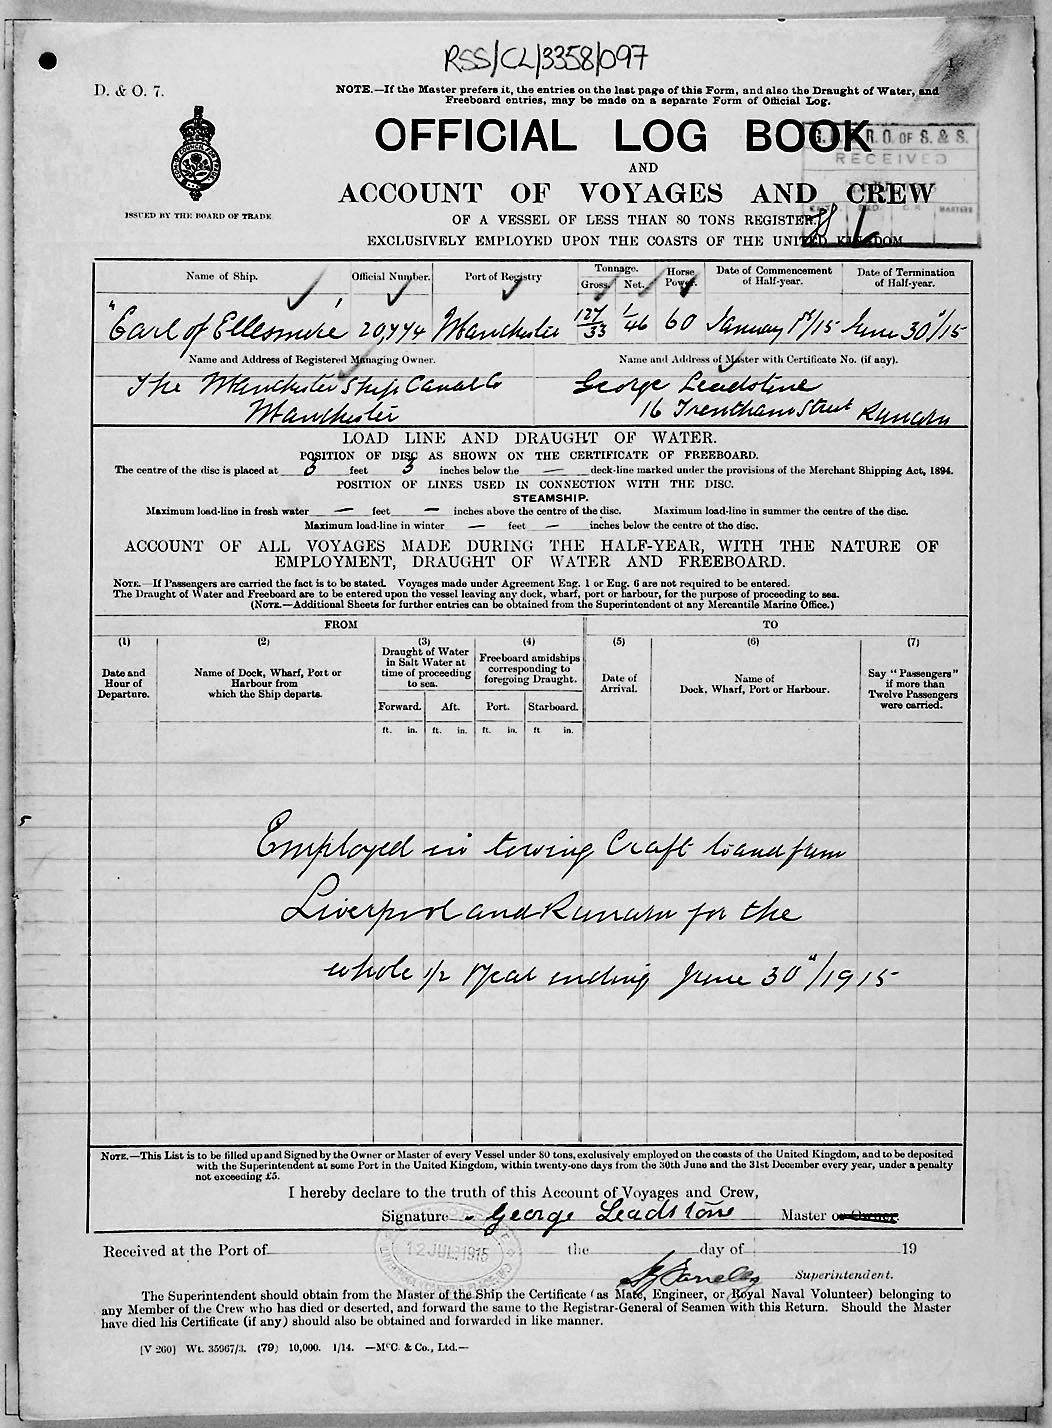 RSS/CL/3358/097
1
D. & O. 7.
NOTE.—If the Master prefers it, the entries on the last page of this Form, and also the Draught of Water, and
Freeboard entries, may be made on a separate Form of Official Log.
OFFICIAL LOG BOOK
AND
ACCOUNT OF VOYAGES AND CREW
OF A VESSEL OF LESS THAN 80 TONS REGISTER,
EXCLUSIVELY EMPLOYED UPON THE COASTS OF THE UNITED KINGDOM
R.O. OF S. & S.
RECEIVED
MASTERS
ISSUED BY THE BOARD OF TRADE
Name of Ship. Official Number. Port of Registry Tonnage. Horse Power. Date of Commencement of Half-year. Date of Termination of Half-year.
Gross. Net.
"Earl of Ellesmere" 20,774 Manchester 127/33 1/46 60 January 1st/15 June 30"/15
Name and Address of Registered Managing Owner. Name and Address of Master with Certificate No. (if any).
The Manchester Ship Canal Co George Leadstone
Manchester 16 Trentham Street Runcorn
LOAD LINE AND DRAUGHT OF WATER.
POSITION OF DISC AS SHOWN ON THE CERTIFICATE OF FREEBOARD.
The centre of the disc is placed at 3 feet 3 inches below the — deck-line marked under the provisions of the Merchant Shipping Act, 1894.
POSITION OF LINES USED IN CONNECTION WITH THE DISC.
STEAMSHIP.
Maximum load-line in fresh water — feet — inches above the centre of the disc. Maximum load-line in summer the centre of the disc.
Maximum load-line in winter — feet — inches below the centre of the disc.
ACCOUNT OF ALL VOYAGES MADE DURING THE HALF-YEAR, WITH THE NATURE OF
EMPLOYMENT, DRAUGHT OF WATER AND FREEBOARD.
NOTE.—If Passengers are carried the fact is to be stated. Voyages made under Agreement Eng. 1 or Eng. 6 are not required to be entered.
The Draught of Water and Freeboard are to be entered upon the vessel leaving any dock, wharf, port or harbour, for the purpose of proceeding to sea.
(NOTE.—Additional Sheets for further entries can be obtained from the Superintendent of any Mercantile Marine Office.)
FROM TO
(1) (2) (3) (4) (5) (6) (7)
Date and Hour of Departure.
Name of Dock, Wharf, Port or Harbour from which the Ship departs.
Draught of Water in Salt Water at time of proceeding to sea.
Freeboard amidships corresponding to foregoing Draught.
Date of Arrival.
Name of Dock, Wharf, Port or Harbour.
Say "Passengers" if more than Twelve Passengers were carried.
Forward. Aft. Port. Starboard.
ft. in. ft. in. ft. in. ft in.
Employed in towing Craft to and from
Liverpool and Runcorn for the
whole 1/2 Year ending June 30"/1915
NOTE.—This List is to be filled up and Signed by the Owner or Master of every Vessel under 80 tons, exclusively employed on the coasts of the United Kingdom, and to be deposited
with the Superintendent at some Port in the United Kingdom, within twenty-one days from the 30th June and the 31st December every year, under a penalty
not exceeding £5.
I hereby declare to the truth of this Account of Voyages and Crew,
Signature George Leadstone Master or Owner.
Received at the Port of the day of 19
12 JUL 1915
Superintendent.
The Superintendent should obtain from the Master of the Ship the Certificate (as Mate, Engineer, or Royal Naval Volunteer) belonging to
any Member of the Crew who has died or deserted, and forward the same to the Registrar-General of Seamen with this Return. Should the Master
have died his Certificate (if any) should also be obtained and forwarded in like manner.
[V 260] Wt. 35967/3. (79) 10,000. 1/14. —McC. & Co., Ltd.—